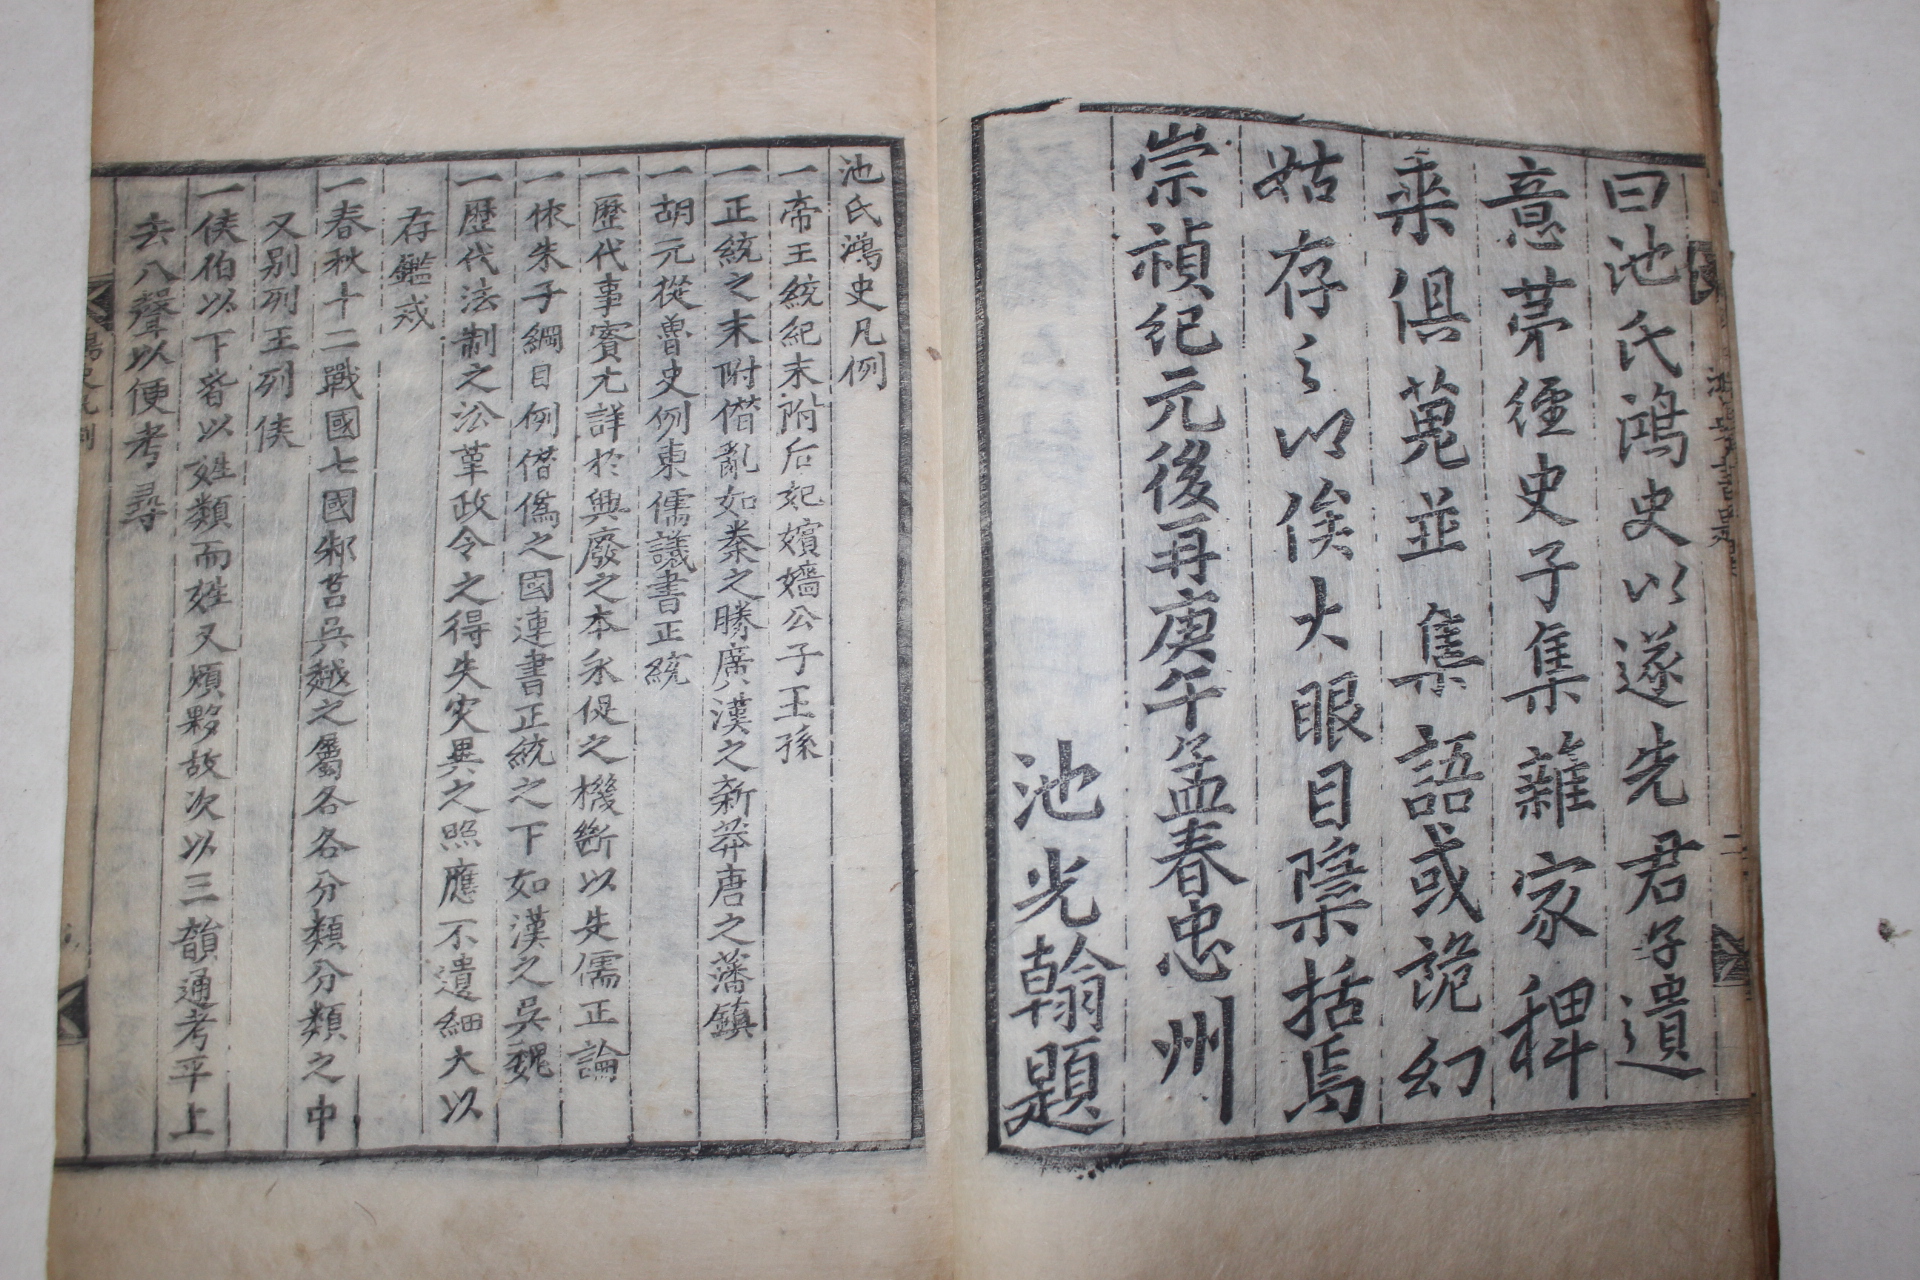 曰池氏鴻史以遂先君子遺
意茅徑史子集雜家稗
乘俱蒐並集語或詭幻
姑存之以俟大眼目隱括焉
崇禎紀元後再庚午孟春忠州
池光翰題
池氏鴻史凡例
一帝王統紀末附后妃嬪嬙公子王孫
一正統之末附僭亂如秦之勝廣漢之新莽唐之藩鎮
一胡元從魯史例東儒議書正統
一歷代事實尤詳於興廢之本永促之機斷以先儒正論
一依朱子綱目例僭僞之國連書正統之下如漢之吳魏
一歷代法制之沿革政令之得失灾異之照應不遺細大以
存鑑戒
一春秋十二戰國七國邾莒吳越之屬各各分類分類之中
又别列王列侯
一侯伯以下者以姓類而姓又煩夥故次以三韻通考平上
去入聲以便考尋